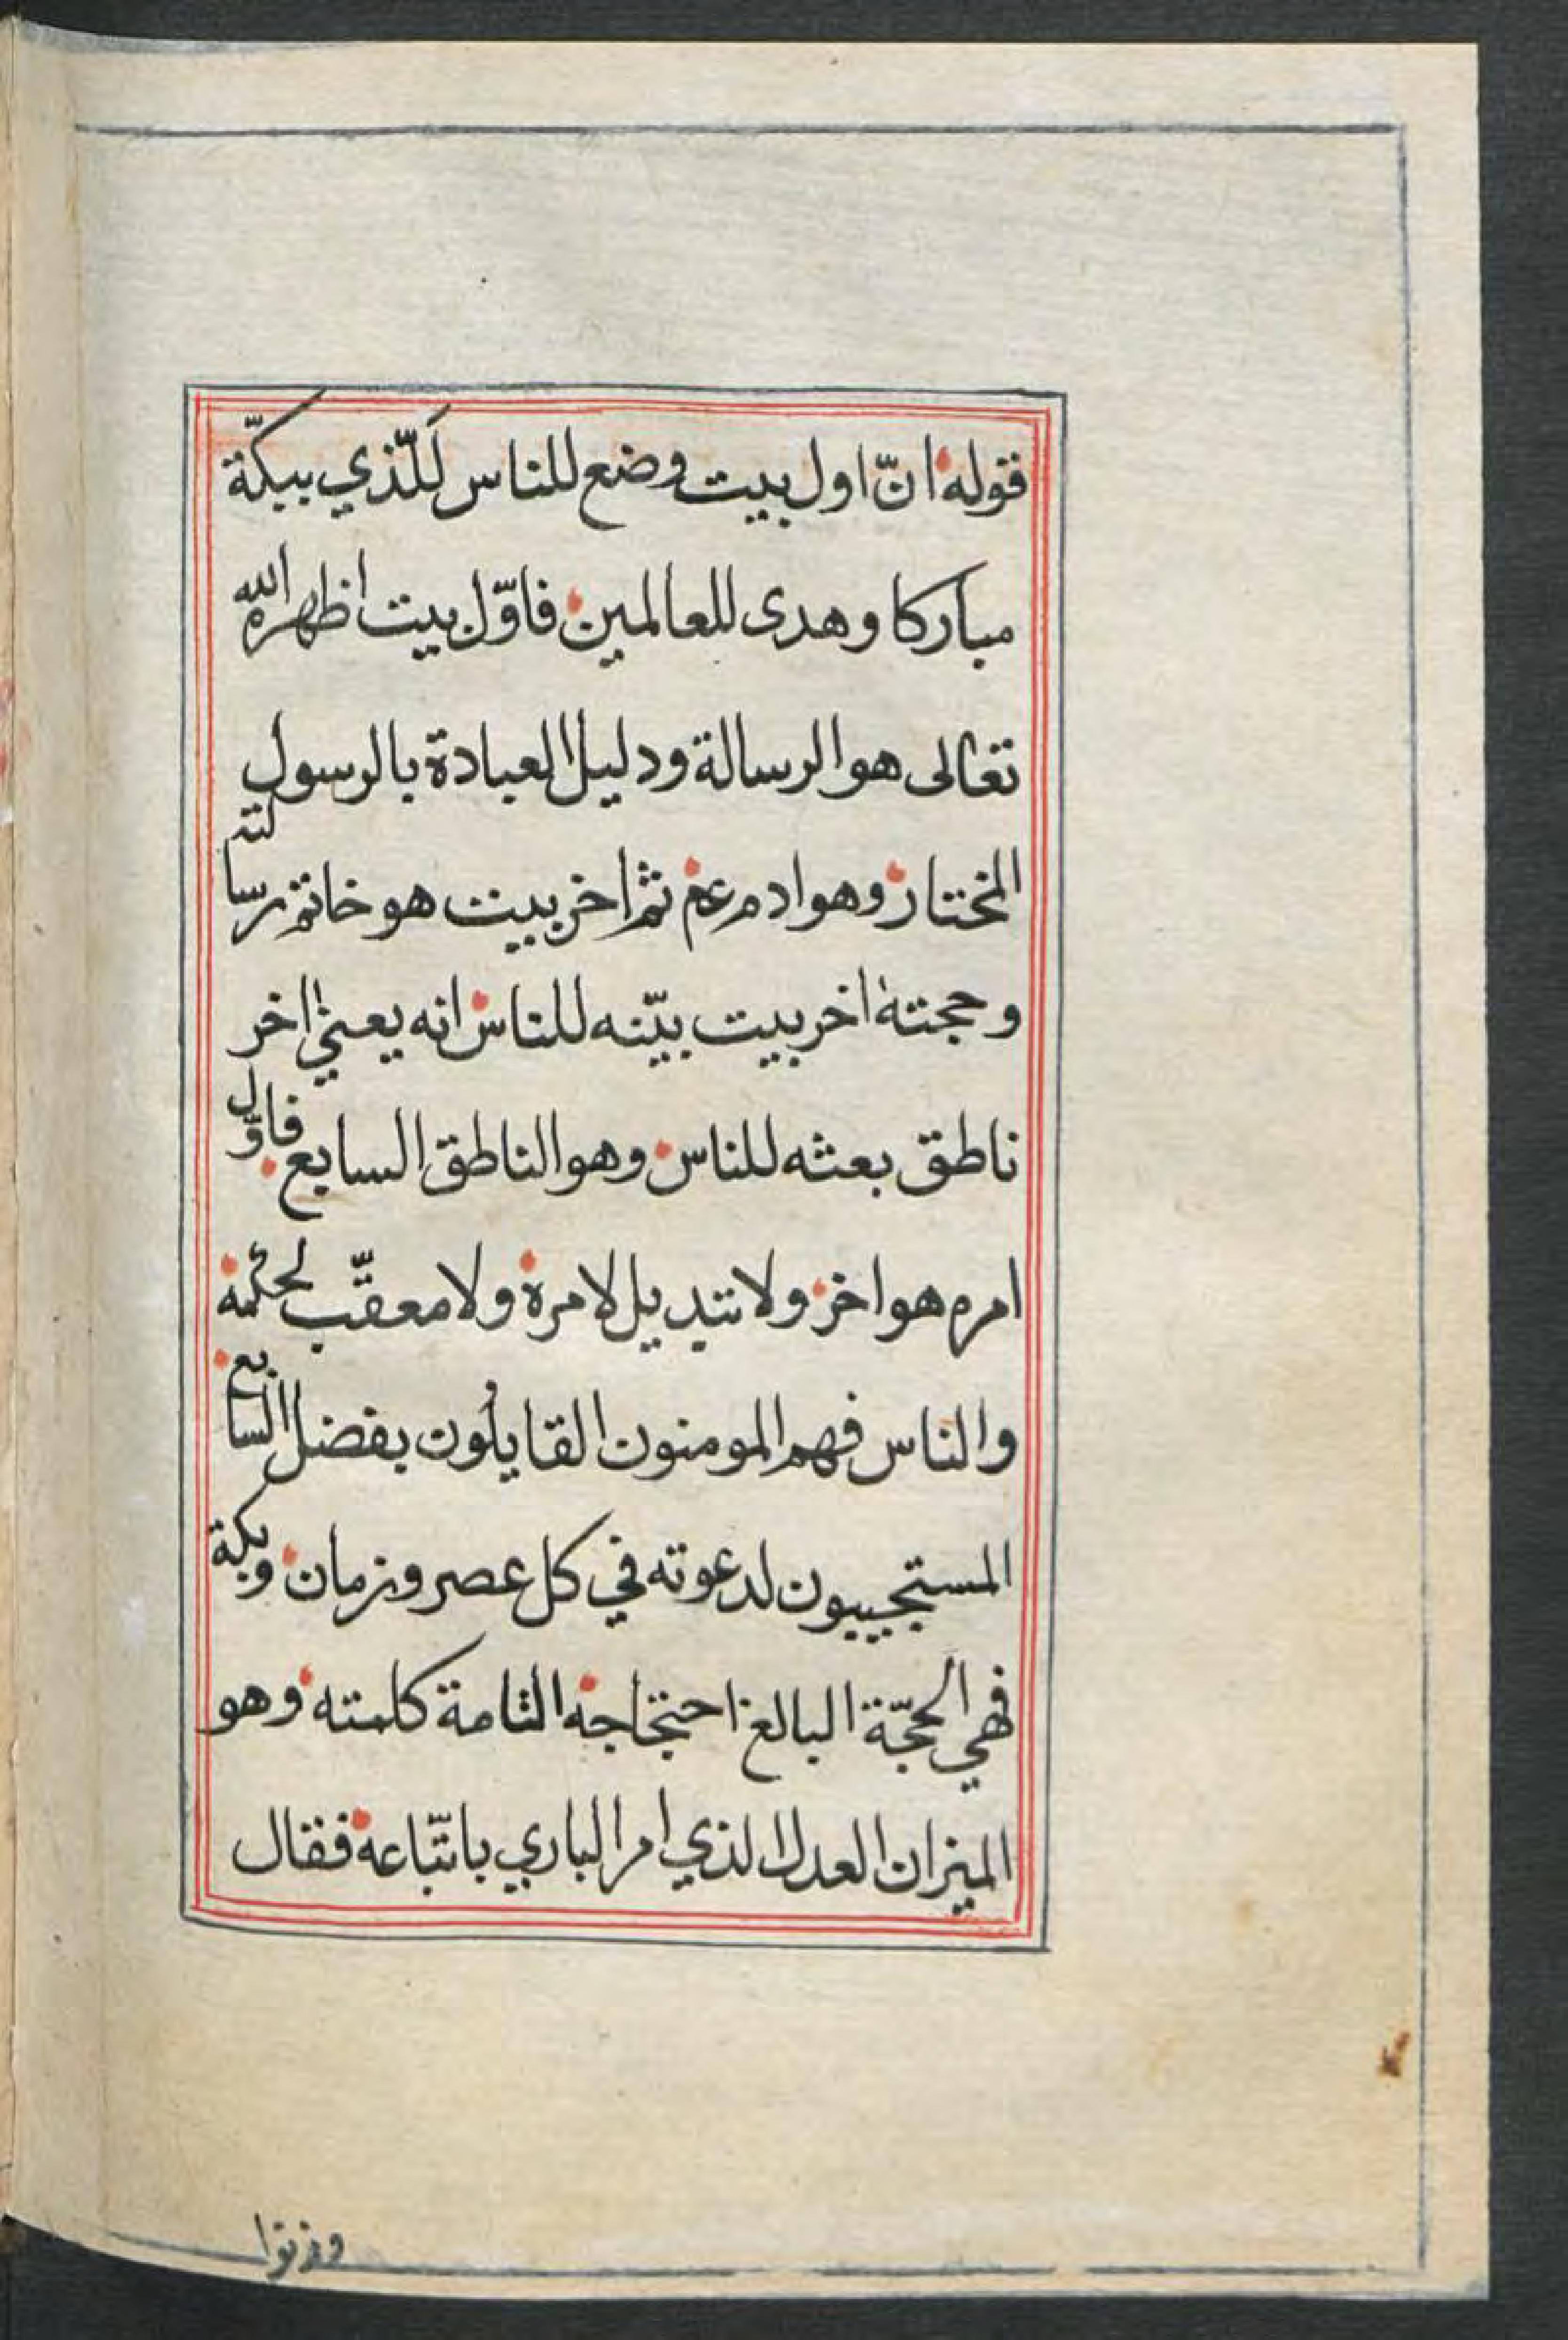 قوله ان اول بيت وضع للناس لَلّذي ببكّة
مباركا وهدى للعالمين فاوّل بيت اظهره الله
تعالى هو الرسالة ودليل العبادة بالرسول
المختار وهو ادم عم ثم اخر بيت هو خاتم رسالته
وحجته اخر بيت بيّنه للناس انه يعني اخر
ناطق بعثه للناس وهو الناطق السابع فاوّل
امرم هو اخر ولا تبديل لامره ولا معقّب لحكمه
والناس فهم المومنون القايلون بفضل السابع
المستجيبون لدعوته في كل عصر وزمان وبكة
فهي الحجّة البالغ احتجاجه التامة كلمته وهو
الميزان العدل الذي امر الباري باتّباعه فقال
وزنوا